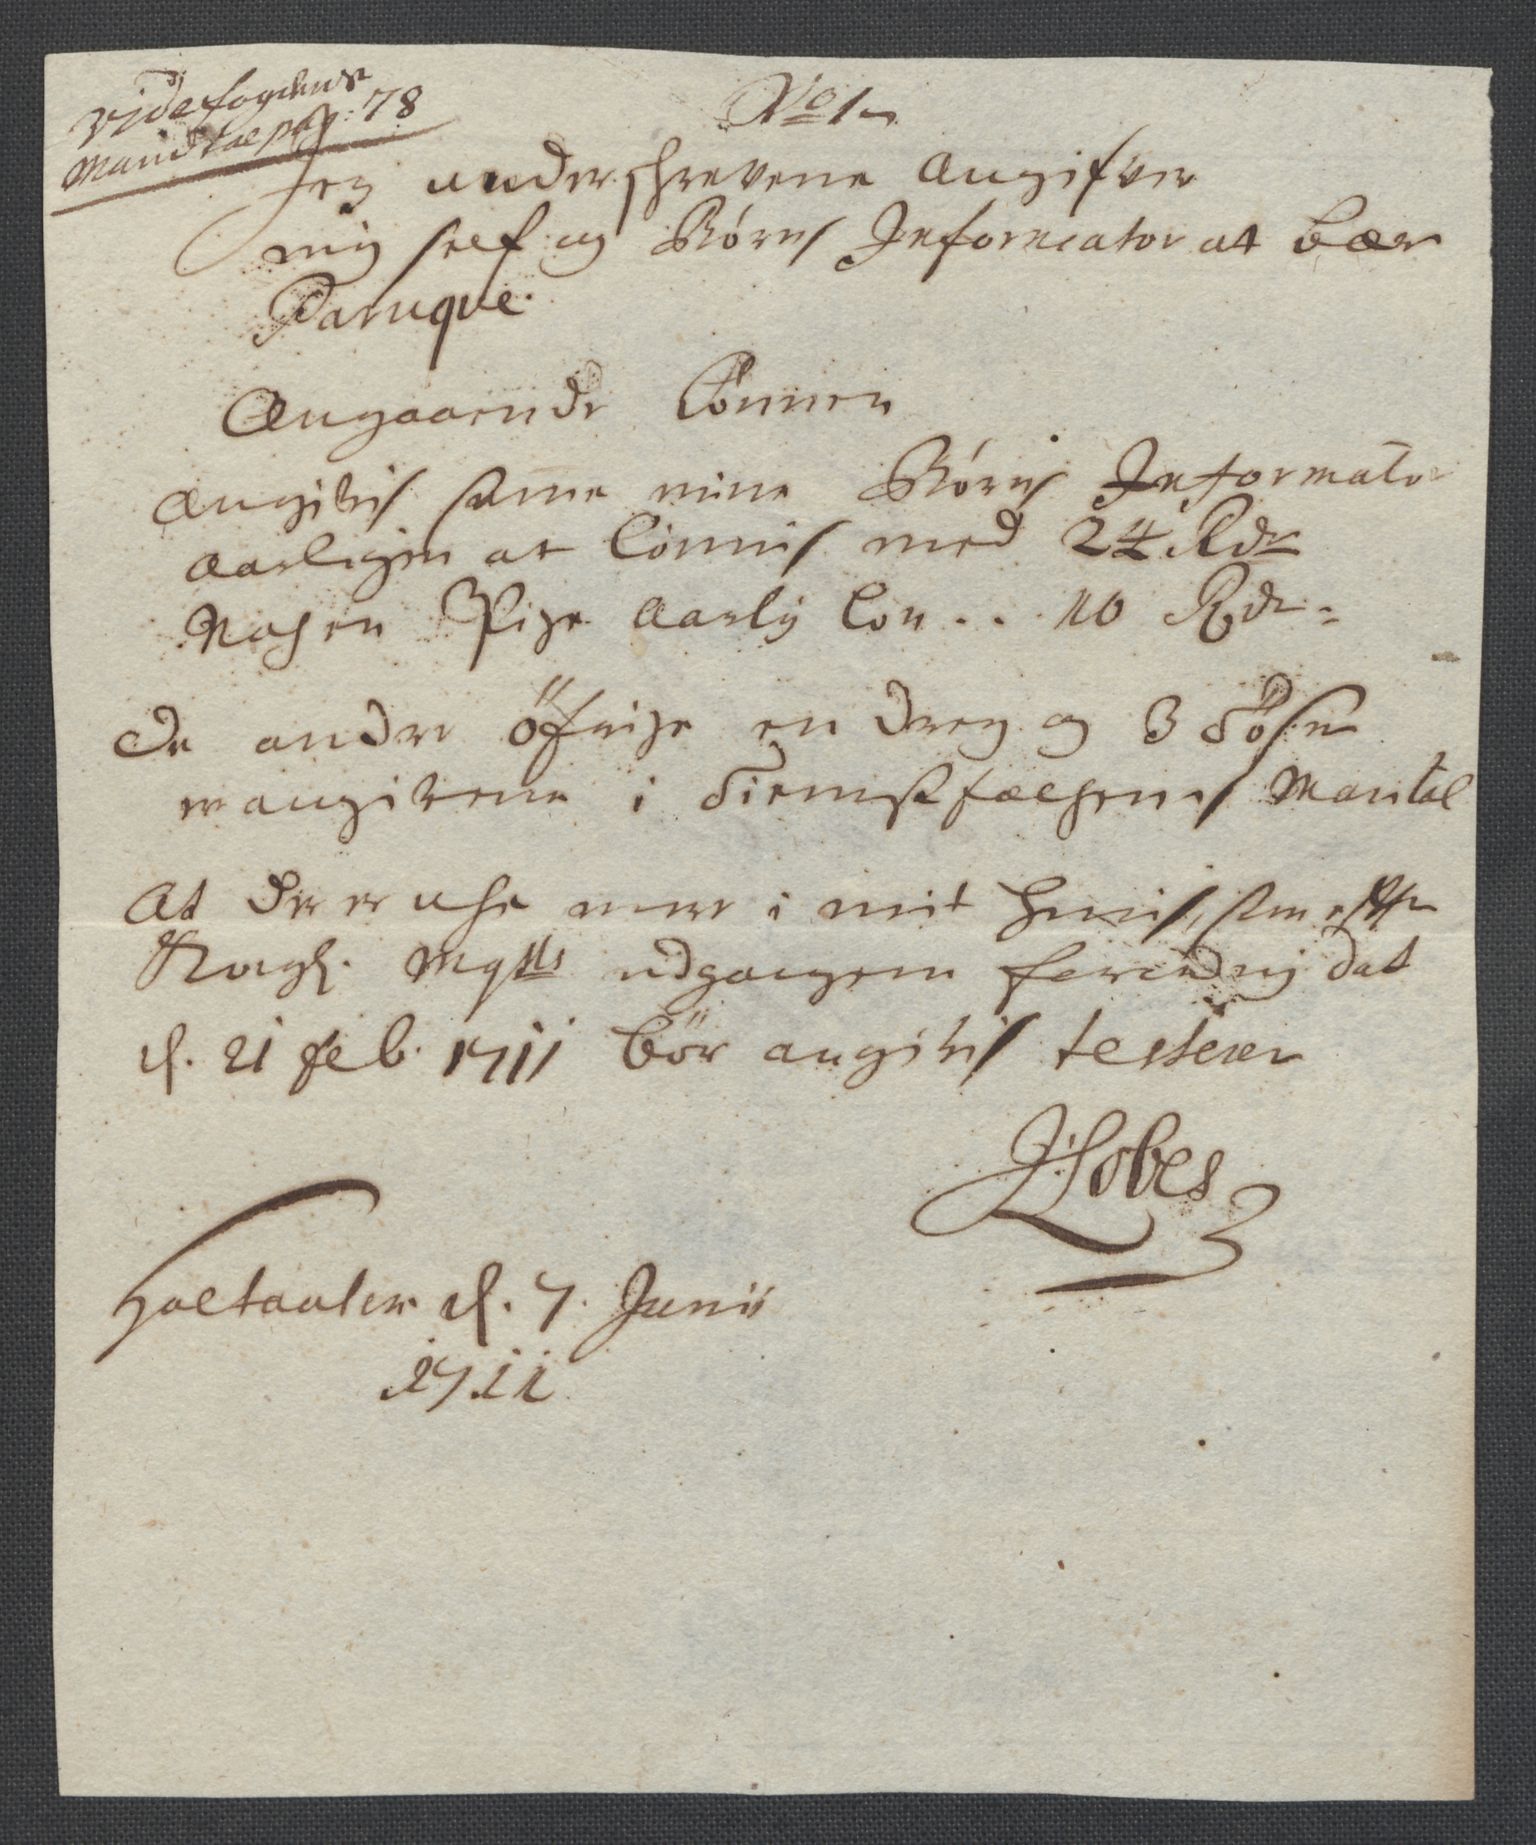 Vide fogdens
Mandtal pag: 78
No 1
Jeg underschrevene Angifver
mig self og Børns Informator at bær
Paruque.
Angaaende Lönnen
Angifvis samme mine Børns Informator
aarligen at lönnis med 24 Rdr
Noch en Pige aarlig lön .. 10 Rdr
De andre öfrige en dreng og 3 Töser
er angifvene i Tienistfolchenes Mantal
At der er iche mere i mit huus, som effter
Kongl. Maytts udgangene forordning dat
d. 21 feb. 1711 bör angifvis testerer
Holtaalen d. 7. Junii
1711